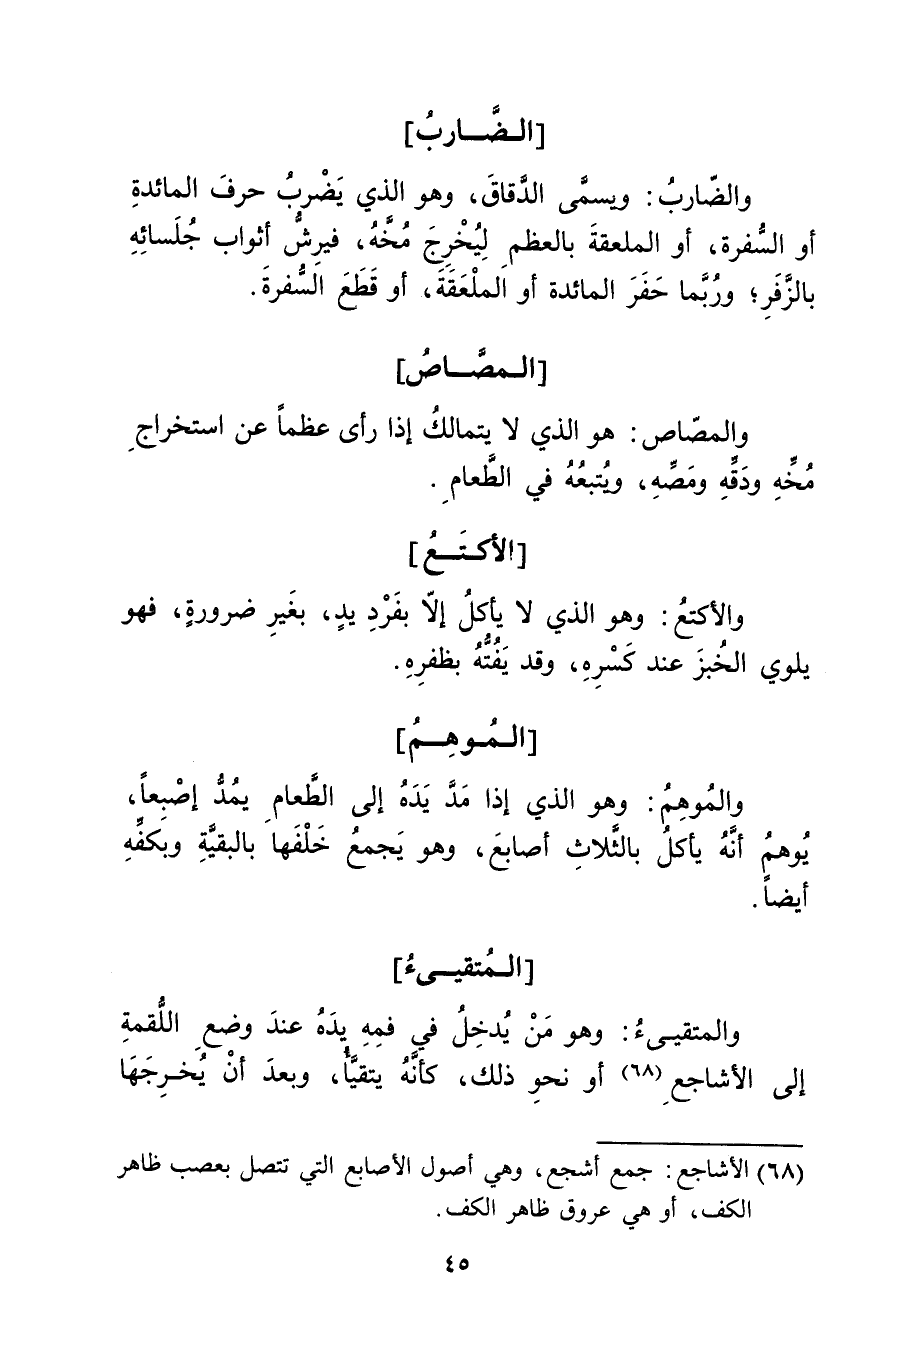 [الضَّاربُ]
والضّاربُ: ويسمَّى الدَّقاقَ، وهو الذي يَضْرِبُ حرفَ المائدةِ
أو السُّفرة، أو الملعقةَ بالعظمِ لِيُخْرِجَ مُخَّهُ، فيرِشُّ أثواب جُلَسائِهِ
بالزَّفَرِ؛ ورُبَّما حَفَرَ المائدة أو المِلْعَقَةَ، أو قَطَعَ السُّفرةَ.
[المصَّاصُ]
والمصّاص: هو الذي لا يتمالكُ إذا رأى عظماً عن استخراجِ
مُخِّهِ ودَقِّهِ ومَصِّهِ، ويُتبعُهُ في الطَّعامِ.
[الأكتَعُ]
والأكتعُ: وهو الذي لا يأكلُ إلّا بفَرْدِ يدٍ، بغَيرِ ضرورةٍ، فهو
يلوي الخُبزَ عند كَسْرِهِ، وقد يَفُتُّهُ بظفرِهِ.
[المُوهِمُ]
والمُوهِمُ: وهو الذي إذا مَدَّ يَدَهُ إلى الطَّعامِ يمُدُّ إصْبِعاً،
يُوهمُ أنَّهُ يأكلُ بالثَّلاثِ أصابعَ، وهو يَجمعُ خَلْفَها بالبقيَّةِ وبكفِّهِ
أيضاً.
[المُتقيىءُ]
والمتقيىءُ: وهو مَنْ يُدخِلُ في فمِهِ يدَهُ عندَ وضعِ اللُّقمةِ
إلى الأشاجعِ (٦٨) أو نحوِ ذلك، كأنَّهُ يتقيَّأُ، وبعدَ أنْ يُخرِجَهَا
(٦٨) الأشاجع: جمع أشجع، وهي أصول الأصابع التي تتصل بعصب ظاهر
الكف، أو هي عروق ظاهر الكف.
٤٥